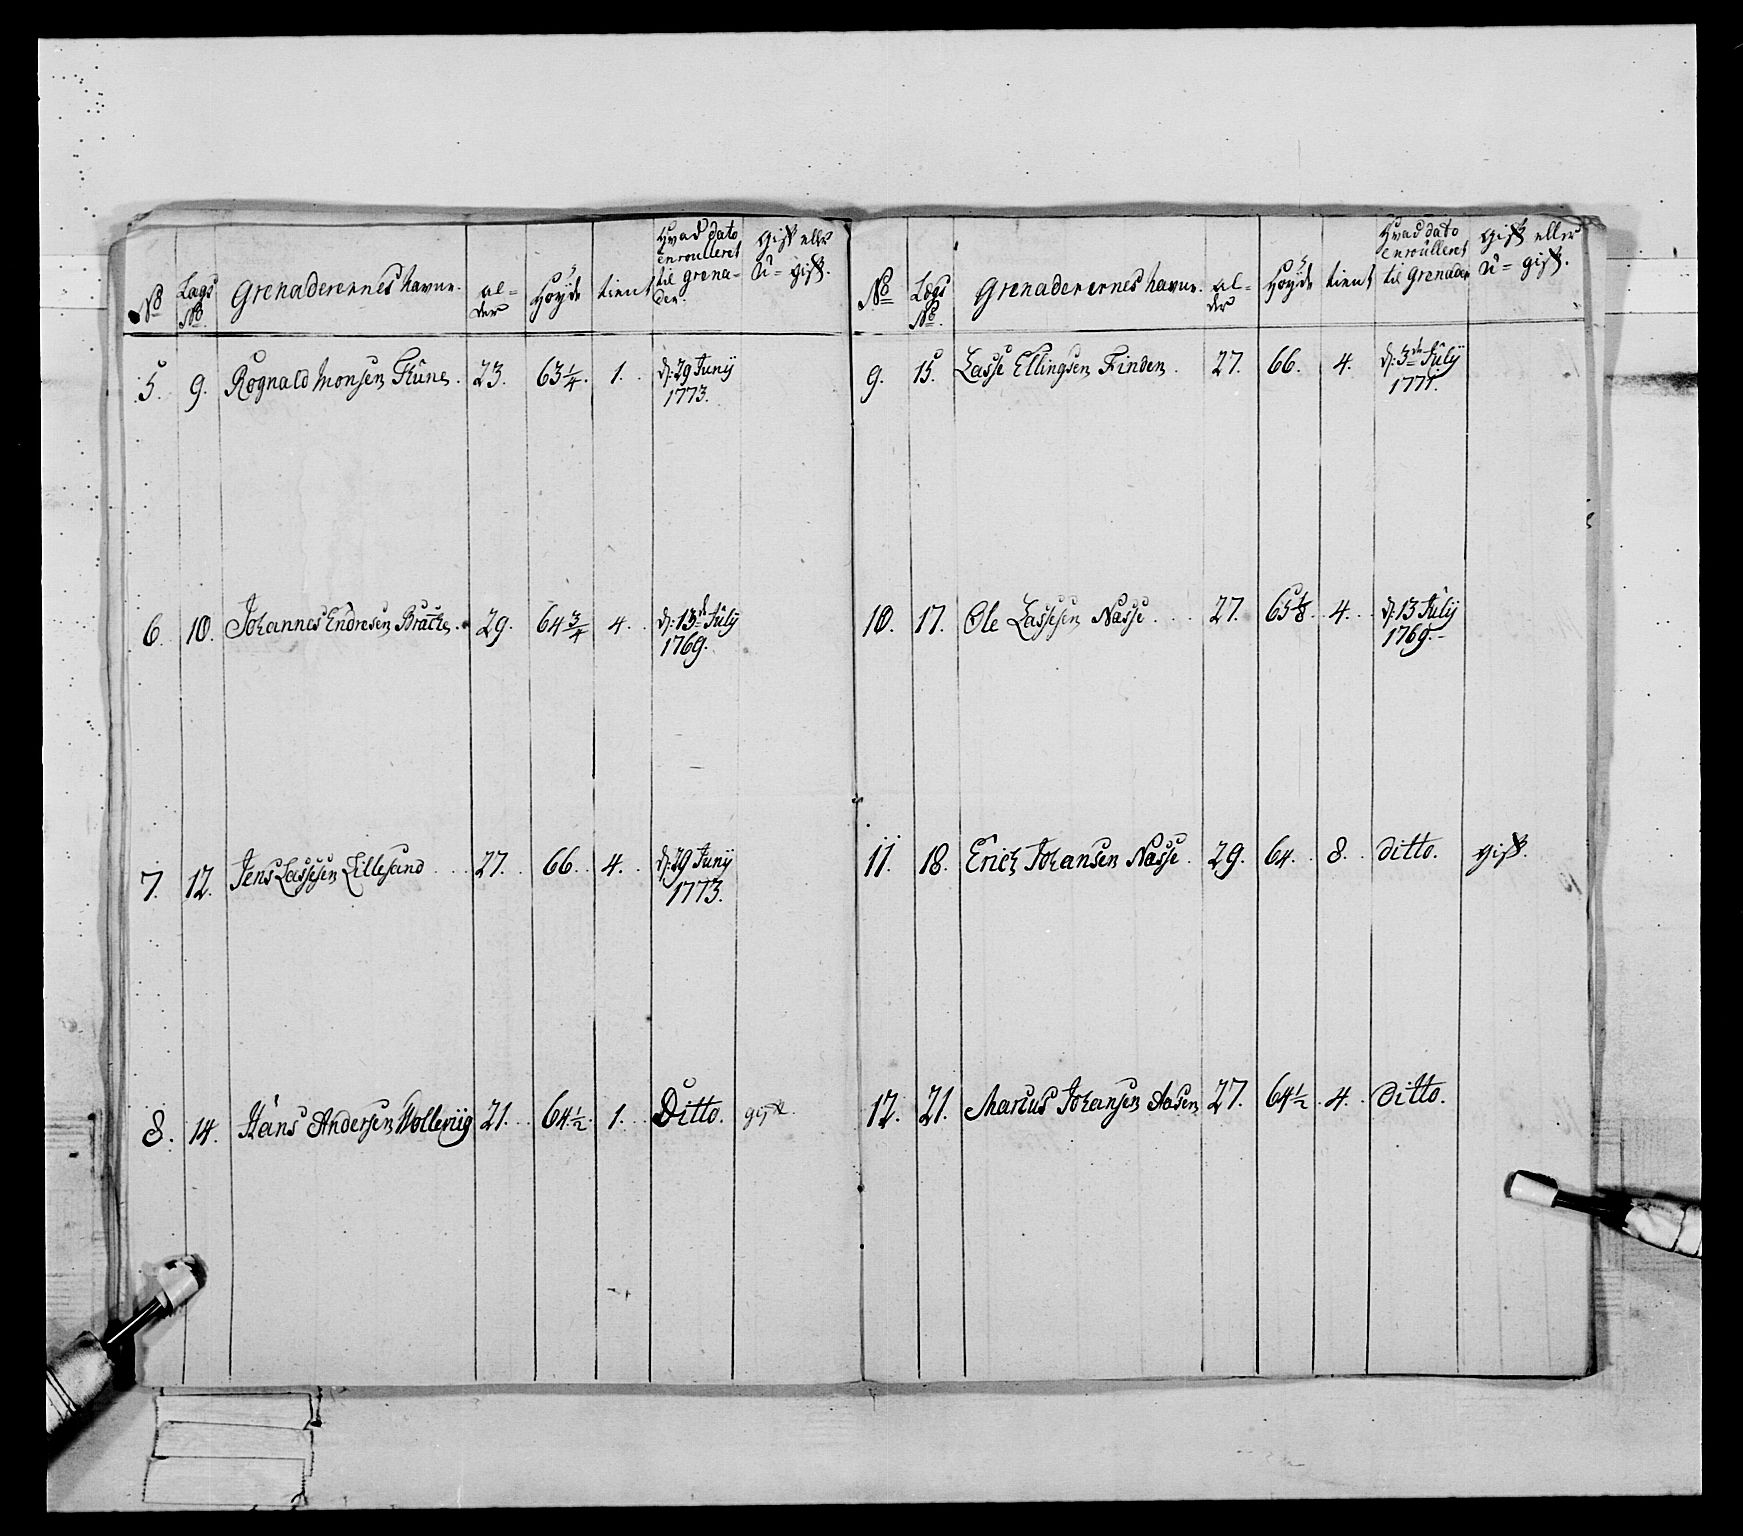 No
Lægs No.
Grenaderernes Navne.
al-
der
Høyde
tient
Hvad dato
enroulleret
til grena-
der.
Gift eller
U= gift.
5. 9. Rognald Monsen 23. 63 1/4. 1. d: 29 Juny
1773.
6. 10. Johannes Endresen 29. 64 3/4 4. d: 13de July
1769.
7. 12. Jens Lassesen Lillesand 27. 66. 4. d: 29 Juny
1773.
8. 14. Hans Andersen Wolleviig 21. 64 1/2. 1. Ditto. gift.
No
Lægs
No.
Grenaderernes Navne.
al-
der
Høyde
tient
Hvad dato
enroulleret
til Grenader
Gift eller
U= gift.
9. 15. Lasse Ellingsen Finden. 27. 66. 4. d: 3de July
1771.
10. 17. Ole Lassesen Næsse. 27. 65 1/8. 4. d: 13 July
1769.
11. 18. Erich Johansen Næsse. 29. 64. 8. ditto. gift.
12. 21. Marius Johansen Aasen 27. 64 1/2. 4. ditto.